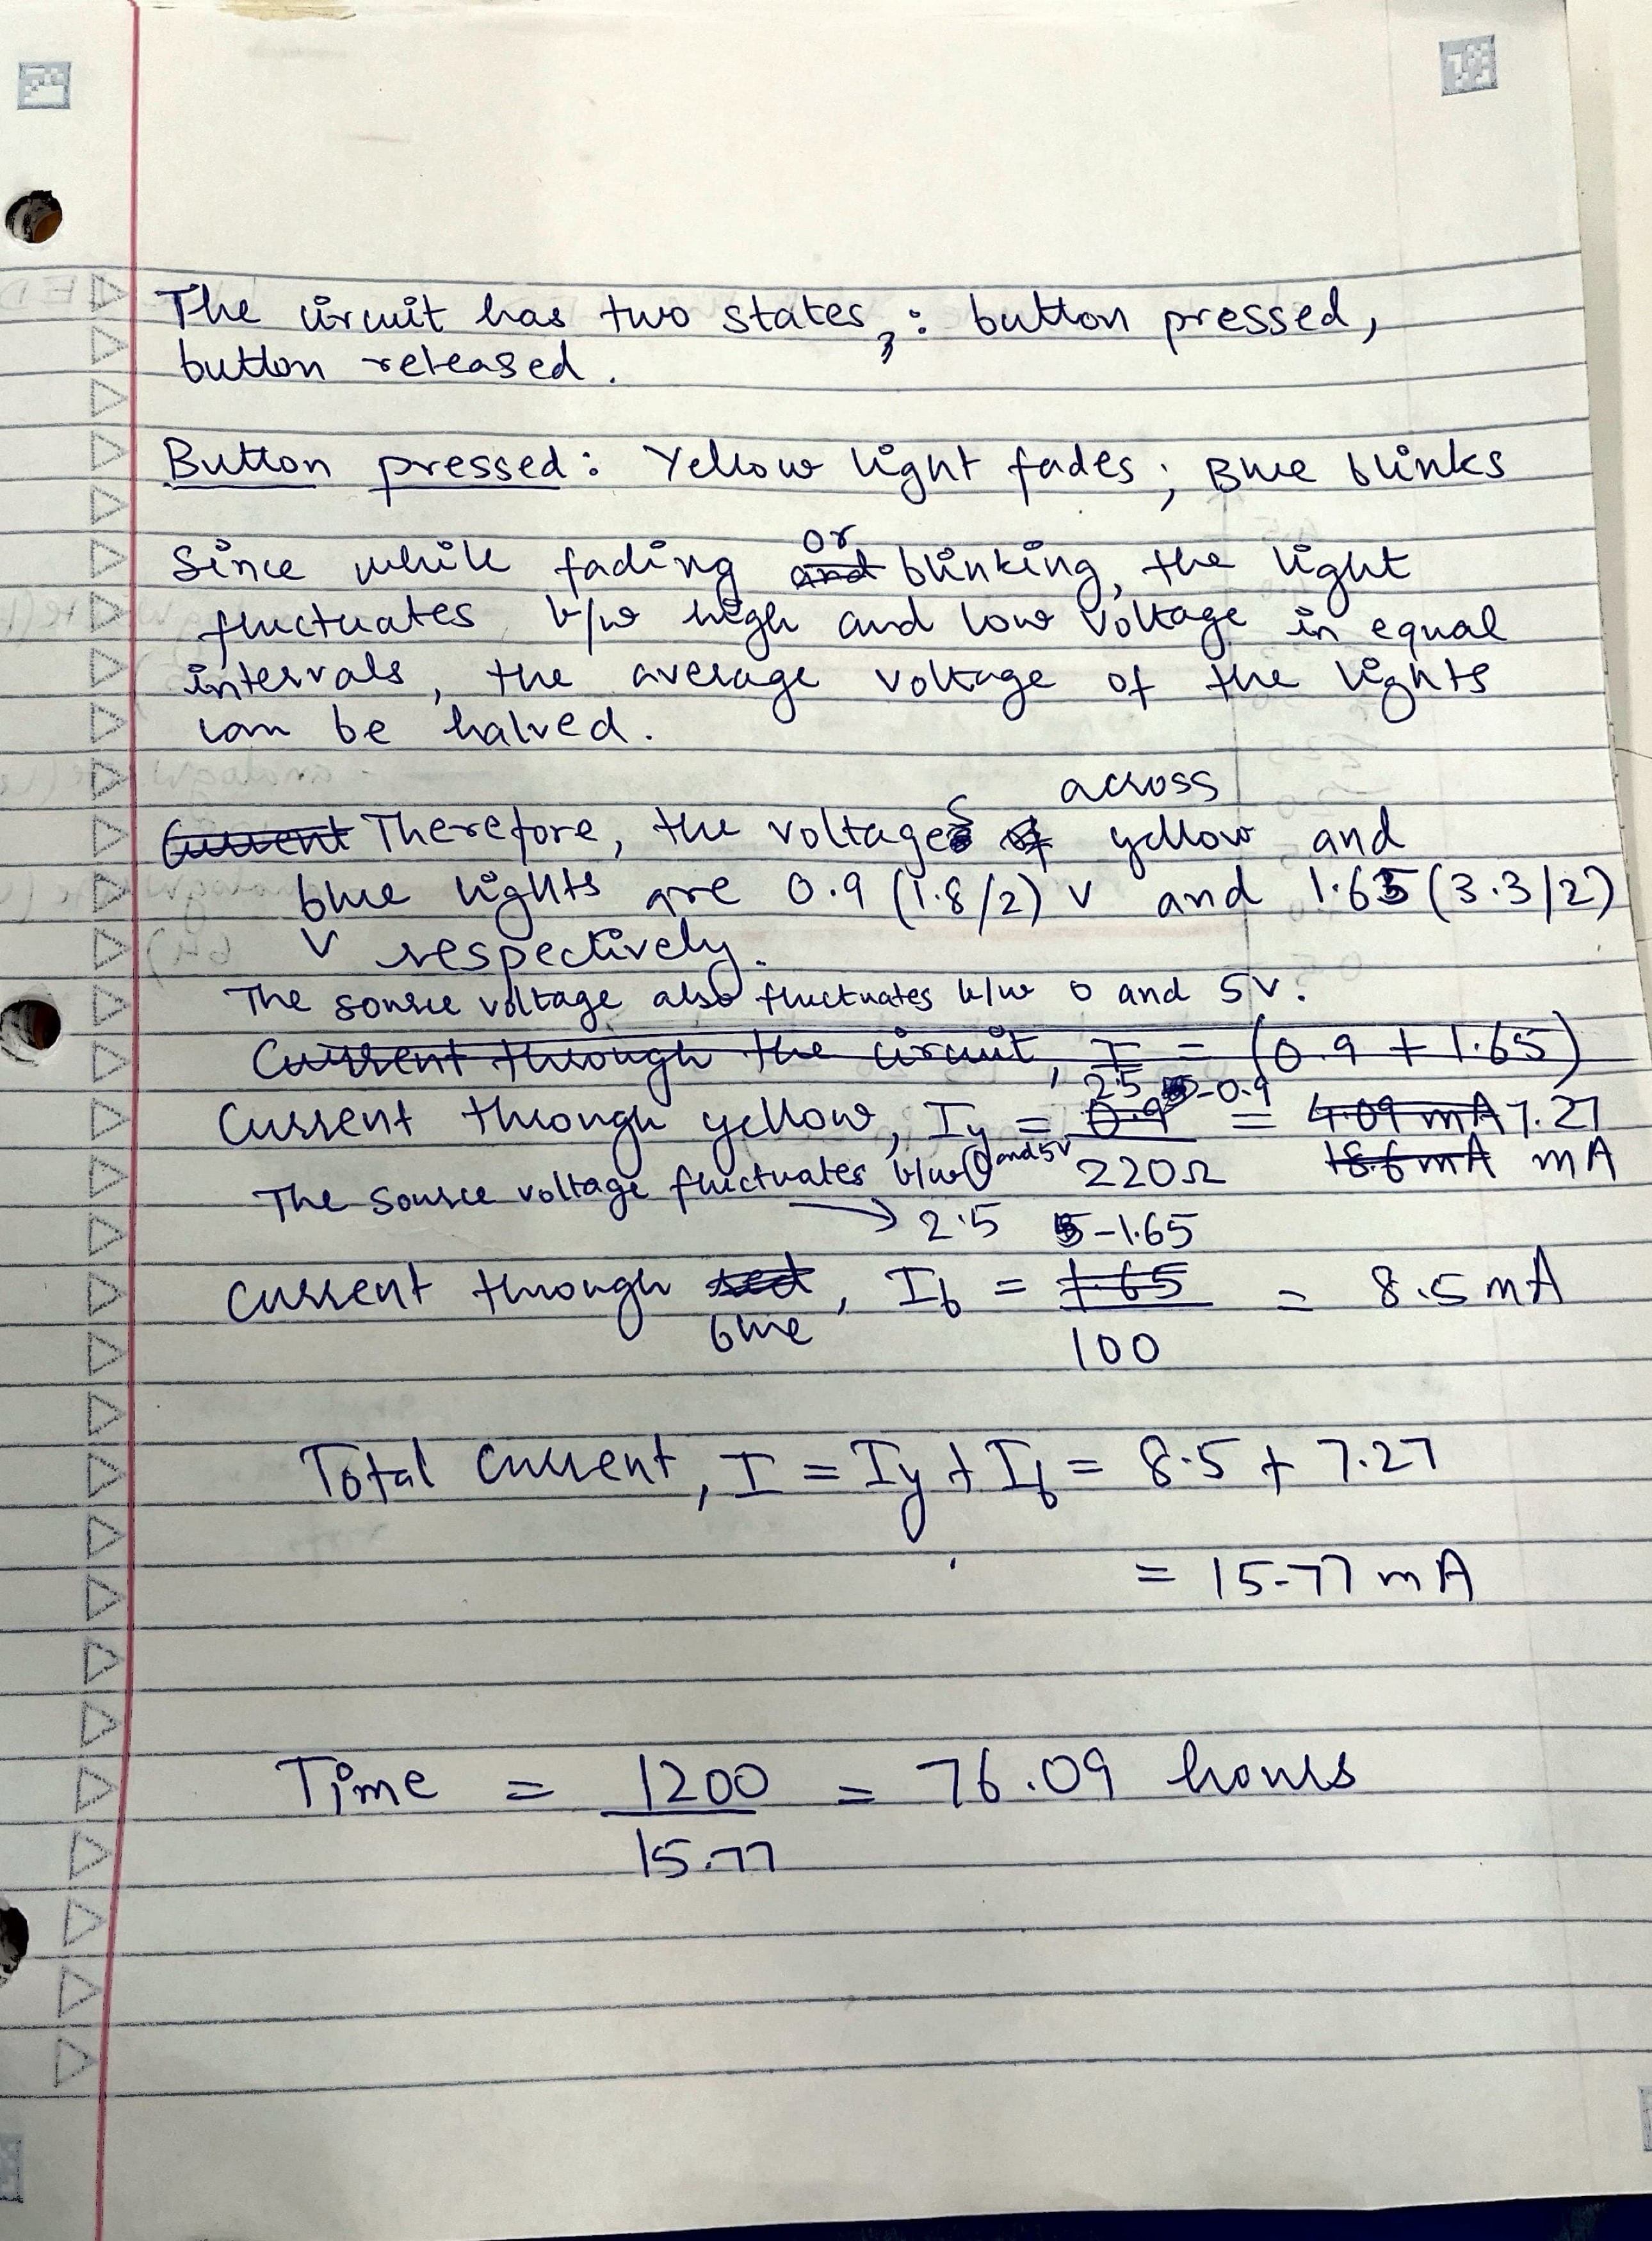 The circuit has two states,: button pressed,
button released.
Button pressed: Yellow light fades; Blue blinks
or
Since while fading and blinking, the light
fluctuates b/w high and low voltage in equal
intervals, the average voltage of the lights
can be halved.
across
Current Therefore, the voltages of yellow and
blue lights are 0.9 (1.8/2) V and 1.65 (3.3/2)
V respectively.
The source voltage also fluctuates b/w 0 and 5V.
Current through the circuit, I = (0.9 + 1.65)
2.5 -0.9
Current through yellow, Iy = 0.9 = 4.09 mA 7.27
The source voltage fluctuates b/w 0 and 5V 220Ω 18.6 mA mA
→ 2.5 5-1.65
Current through red, Ib = 1.65 = 8.5 mA
blue
100
Total current, I = Iy + Ib = 8.5 + 7.27
= 15.77 mA
Time = 1200 = 76.09 hours
15.77